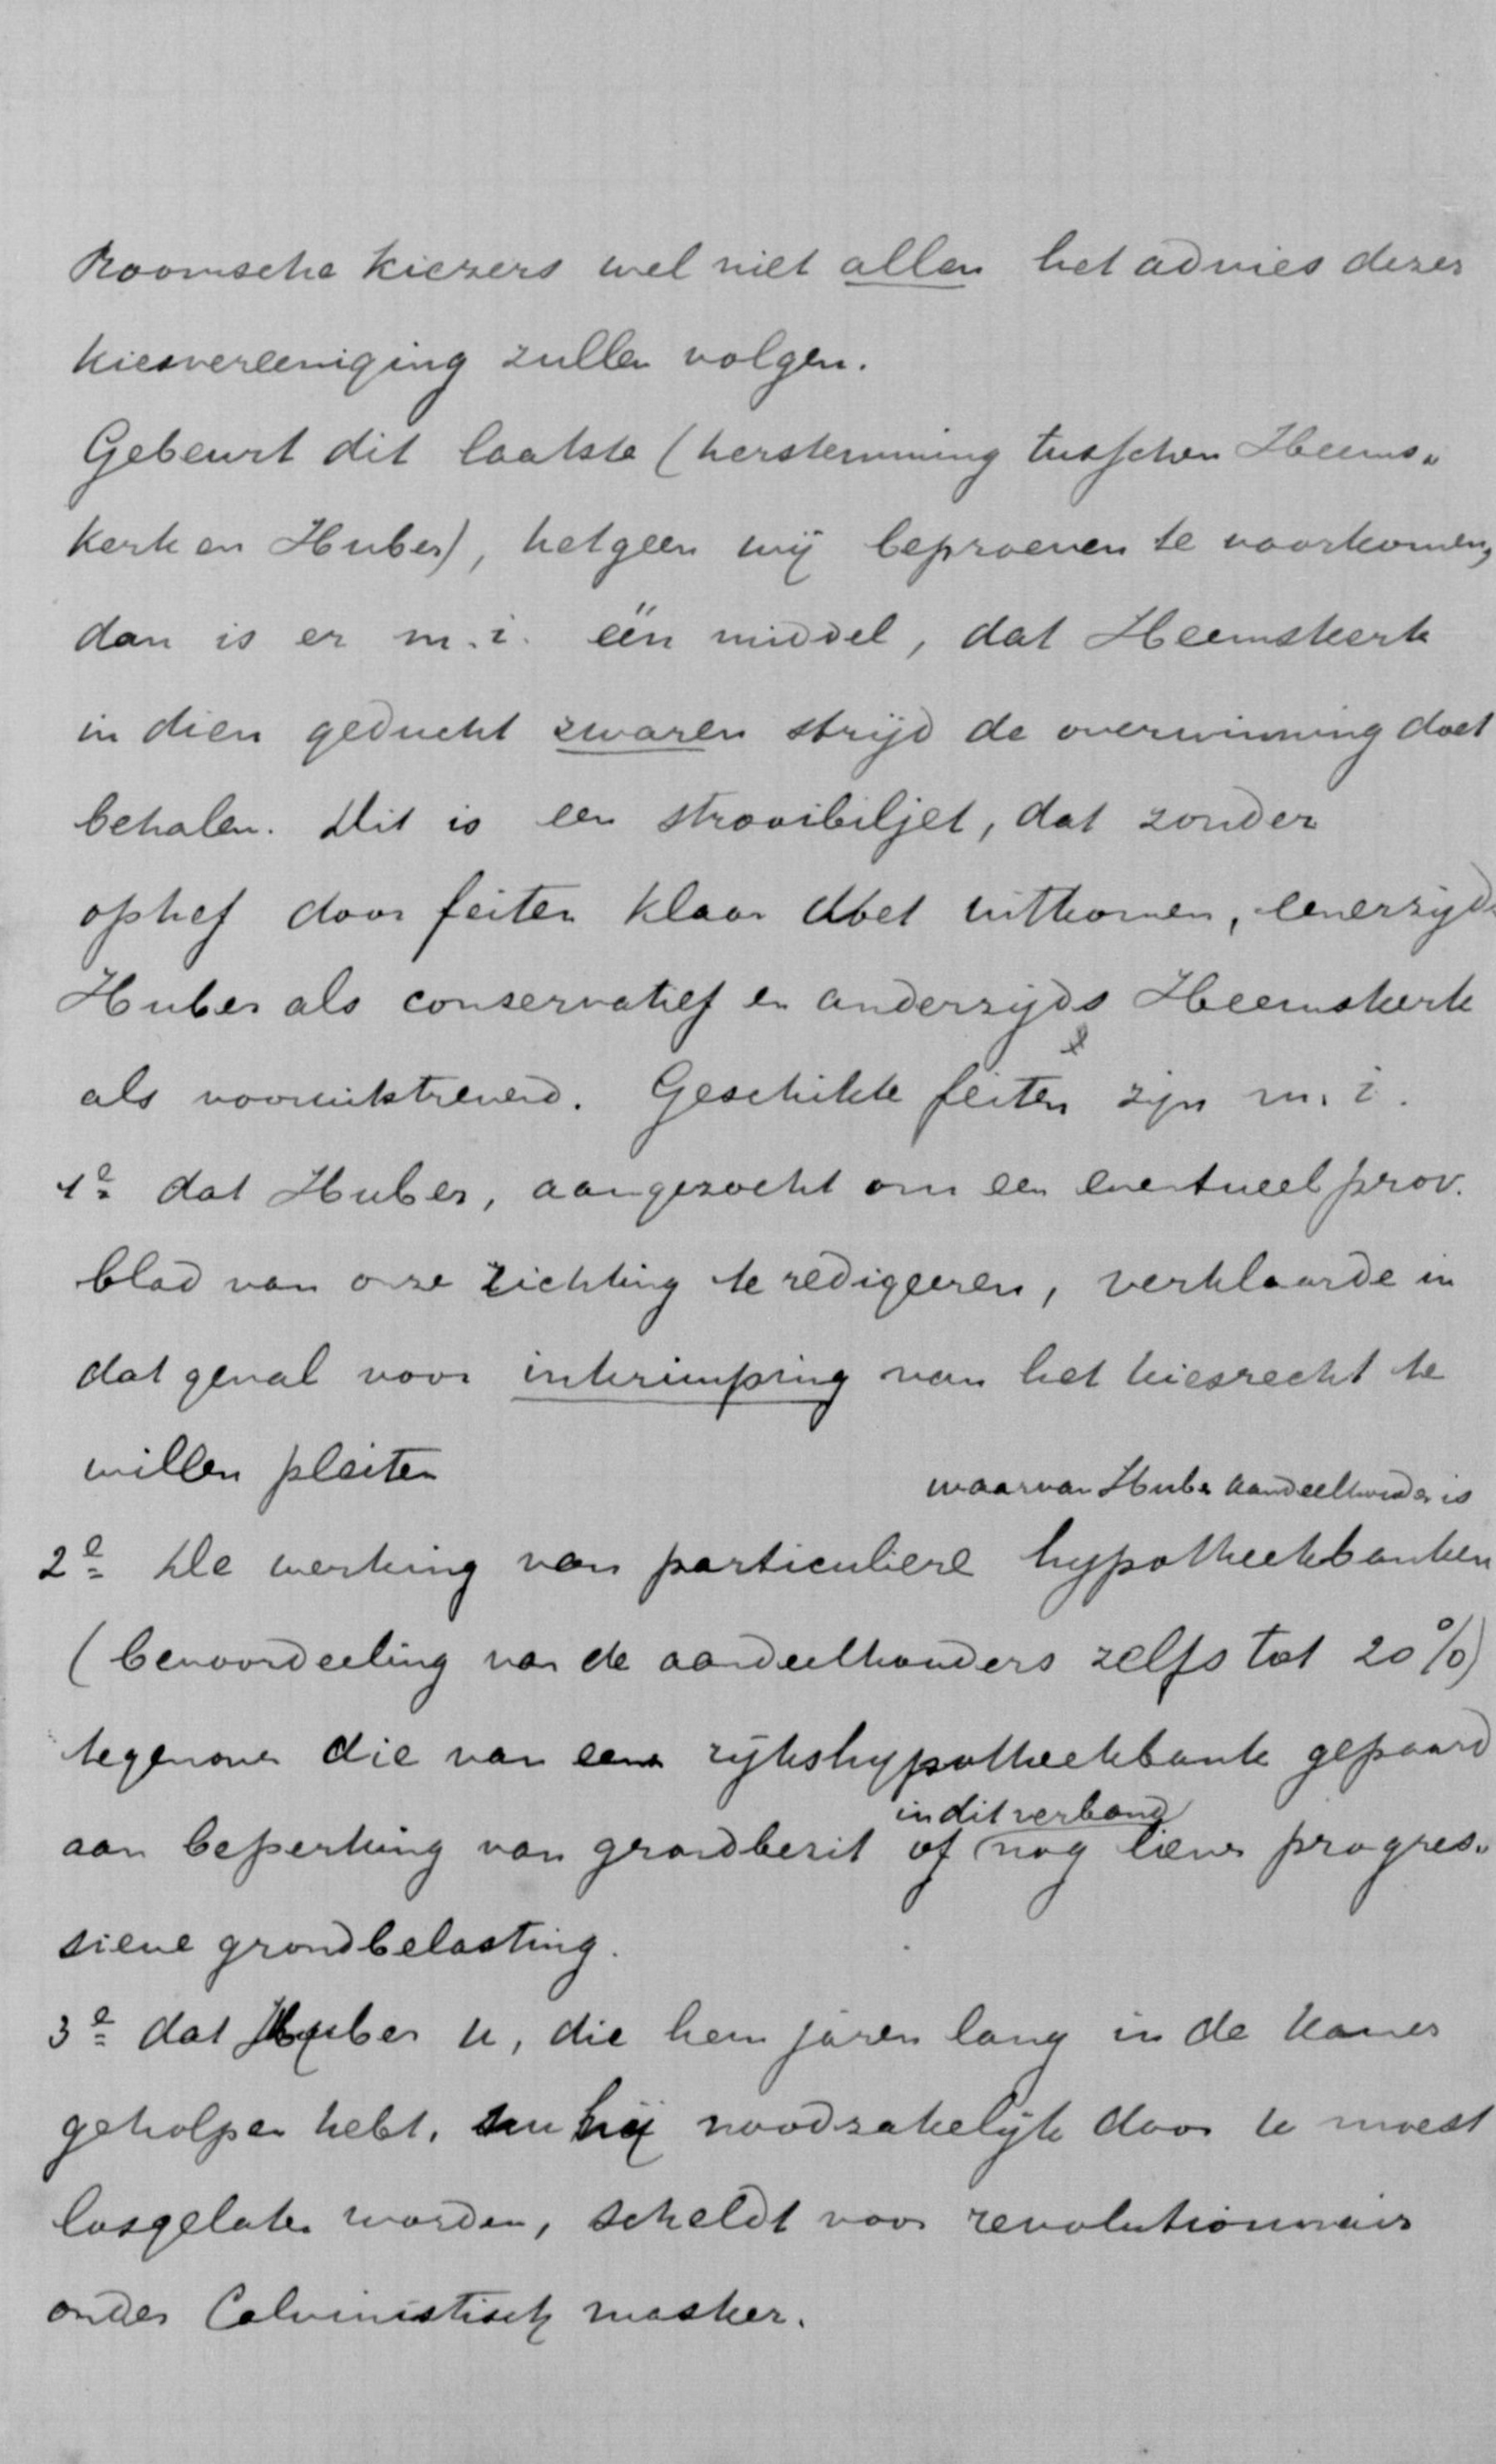 Roomsche kiezers wel niet allen het advies dezer
kiesvereeniging zullen volgen.
Gebeurt dit laatste (herstemming tusschen Heems„
kerk en Huber), hetgeen wij beproeven te voorkomen,
dan is er m.i. één middel, dat Heemskerk
in dien geducht zwaren strijd de overwinning doet
behalen. Dit is een strooibiljet, dat zonder
ophef door feiten klaar doet uitkomen, eenerzijds
Huber als conservatief en anderzijds Heemskerk
als vooruitstrevend. Geschikte feiten zijn m.i.
1e dat Huber, aangezocht om een eventueel prov.
blad van onze richting te redigeeren, verklaarde in
dat geval voor inkrimping van het kiesrecht te
willen pleiten
waarvan Huber aandeelhouder is
2e De werking van particuliere hypotheekbanken
(bevoordeeling van de aandeelhouders zelfs tot 20%)
tegenover die van eene rijkshypotheekbank gepaard
in dit verband
aan beperking van grondbezit of nog liever progres„
sieve grondbelasting.
3e dat Huber u, die hem jaren lang in de kamer
geholpen hebt, nu hij noodzakelijk door u moest
losgelaten worden, scheldt voor revolutionnair
onder Calvinistisch masker.